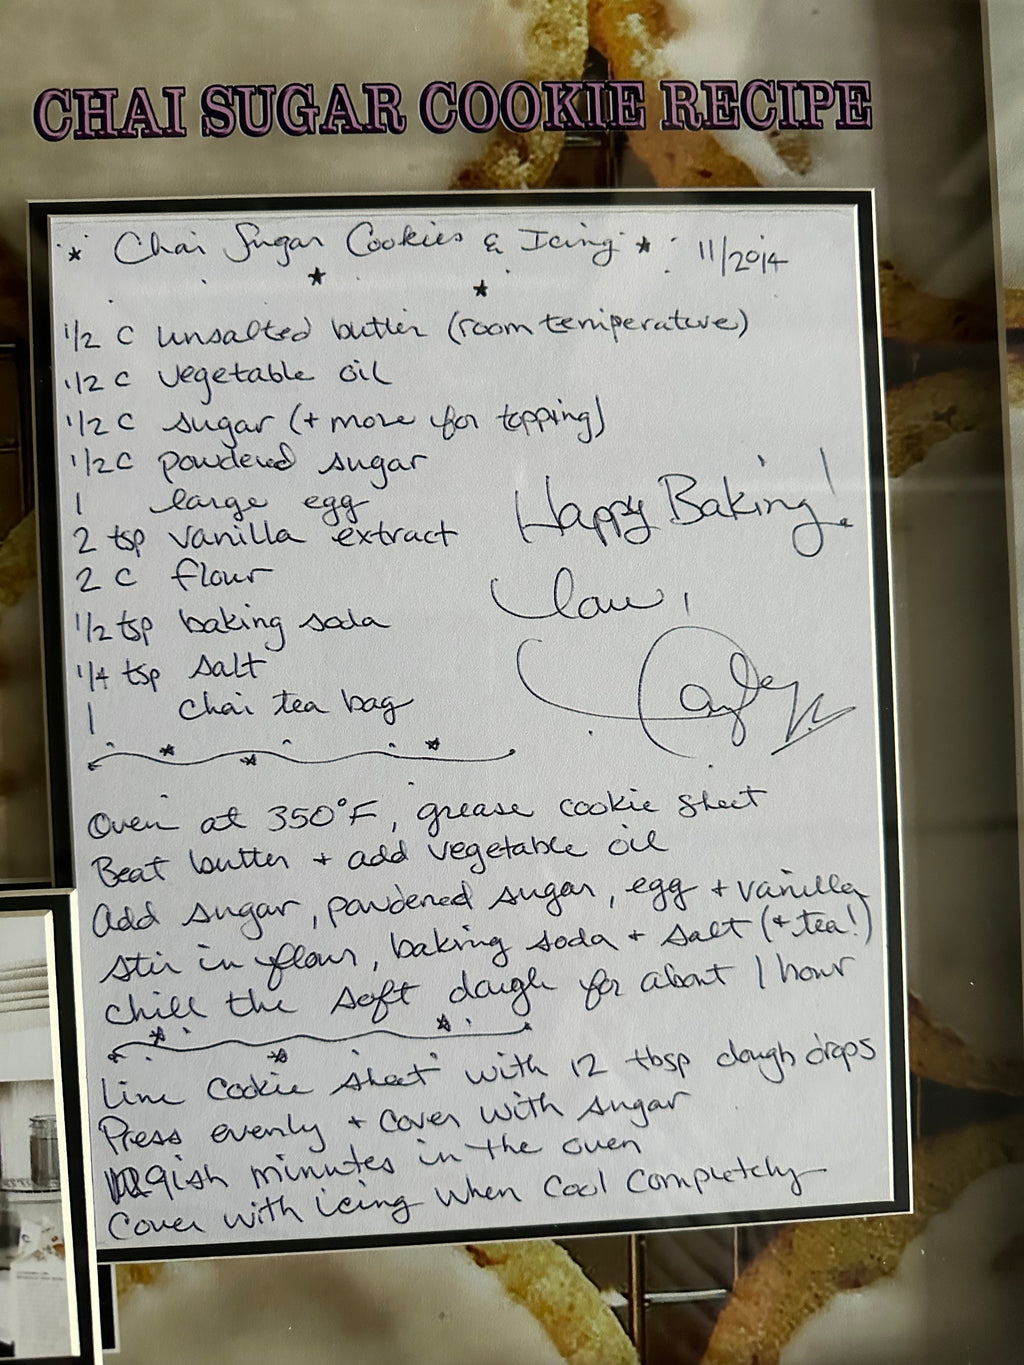 CHAI SUGAR COOKIE RECIPE
* Chai Sugar Cookies & Icing * 11/2014
1/2 C unsalted butter (room temperature)
1/2 C vegetable oil
1/2 C sugar (+ more for topping)
1/2 C powdered sugar
1 large egg
2 tsp vanilla extract
2 C flour
1/2 tsp baking soda
1/4 tsp salt
1 chai tea bag
Happy Baking!
Oven at 350°F, grease cookie sheet
Beat butter + add vegetable oil
Add sugar, powdered sugar, egg + vanilla
stir in flour, baking soda + salt (+ tea!)
chill the soft dough for about 1 hour
Line cookie sheet with 12 tbsp dough drops
Press evenly + cover with sugar
9ish minutes in the oven
Cover with icing when cool completely